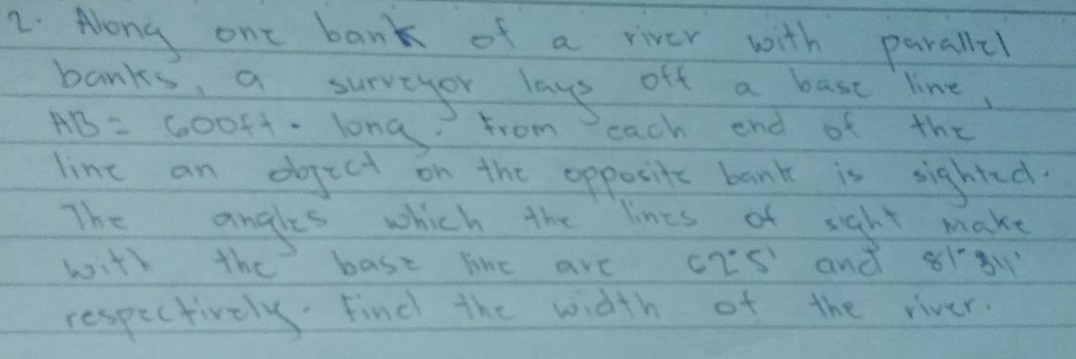 2. Along one bank of a river with parallel
banks, a surveyor lays off a base line,
AB = 600ft. long. From each end of the
line an object on the opposite bank is sighted.
The angles which the lines of sight make
with the base line are 62°5' and
respectively. Find the width of the river.